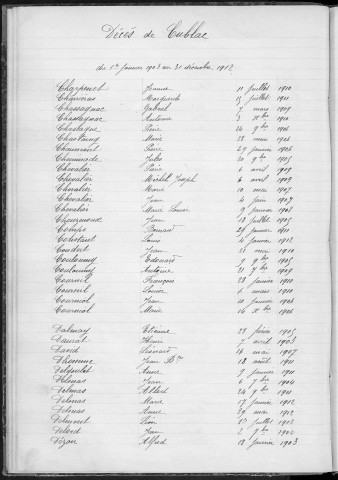 Décès de Cublac
du 1er janvier 1903 au 31 décembre 1912
Charpenet Jeanne 11 juillet 1910
Marguerite 15 juillet 1911
Chassagnac Gabriel 7 mars 1909
Chastagnac Antoine 3 Xbre 1910
Chastaque Pierre 24 9bre 1906
Marie 28 mai 1906
Chaumont Pierre 29 janvier 1906
Cheminade Jules 20 9bre 1905
Chevalier Pierre 6 avril 1909
Chevalier Michel Joseph 8 avril 1909
Chevalier Marie 10 mai 1907
Chevalier Jean 4 juin 1907
Chevalier Marie Louise 9 janvier 1908
Jean 13 juillet 1905
Comps Bernard 29 janvier 1911
Louis 6 janvier 1912
Coudert Jean 25 mai 1910
Couloumy Edouard 9 9bre 1905
Couloumy Antoine 21 7bre 1909
Cournil François 28 janvier 1910
Cournil Louise 6 mars 1910
Courniol Jean 10 janvier 1908
Courniol Marie 14 Xbre 1906
Dalmay Etienne 28 février 1905
Daurat Henri 7 avril 1903
David Léonard 16 mai 1907
Dhomme Jean Bte 18 août 1911
Anne 9 janvier 1911
Delmas Jean 6 7bre 1904
Delmas Albert 24 9bre 1911
Delmas Marie 17 janvier 1912
Delmas Anne 29 mai 1912
Léon 15 juillet 1912
Jean 2 9bre 1902
Dézon Alfred 18 janvier 1903